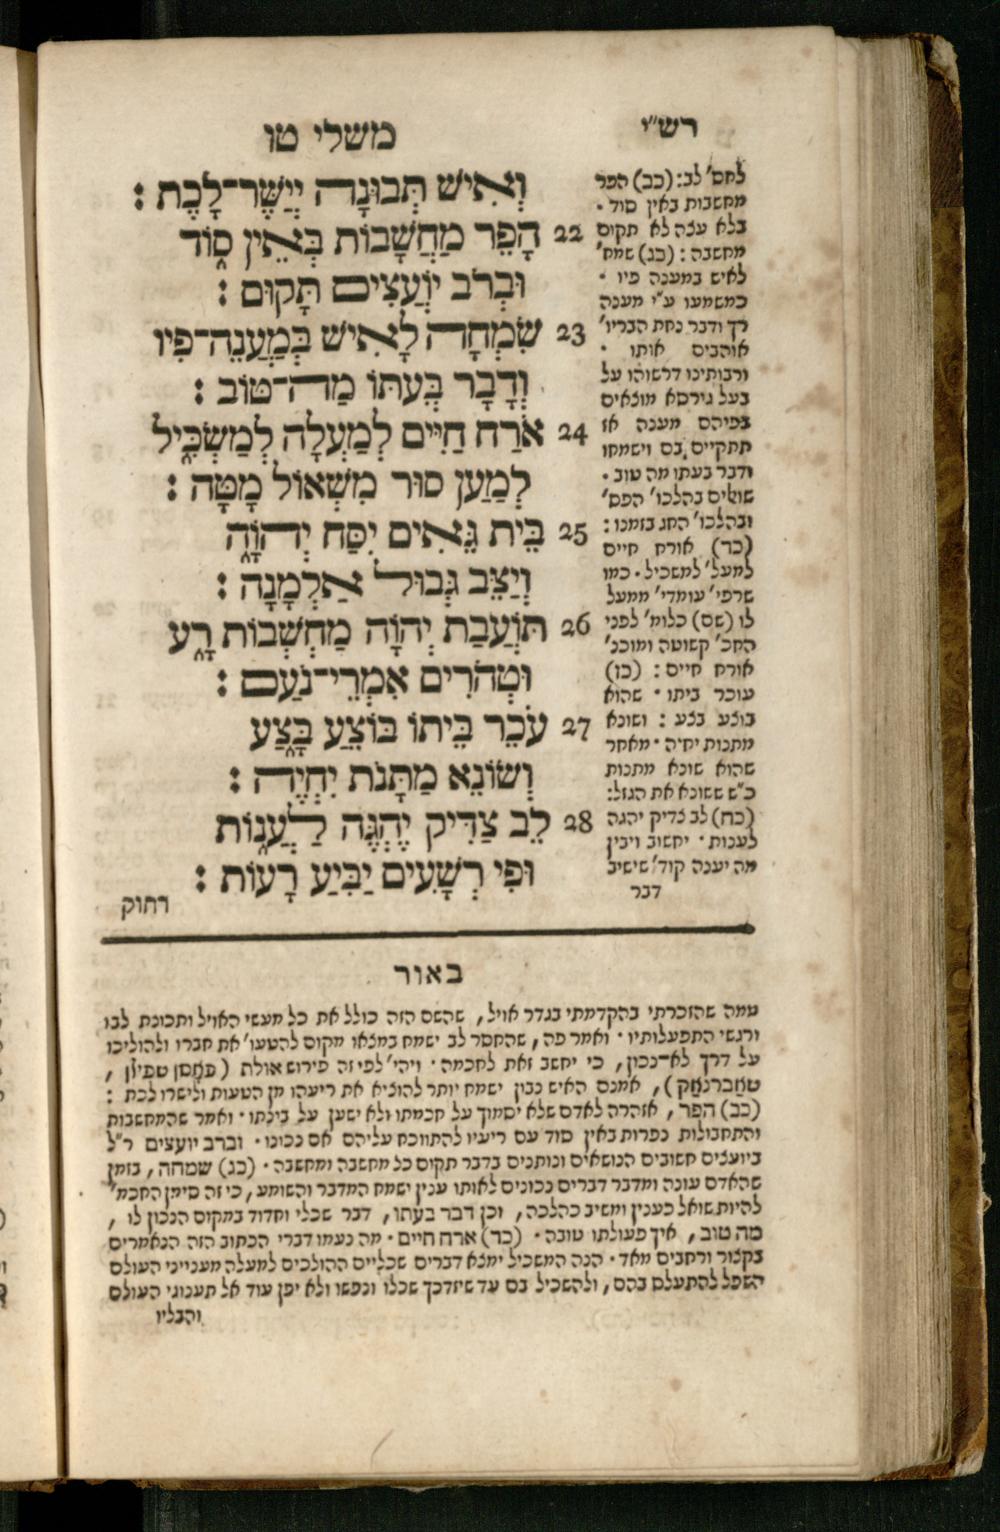 רש״י
משלי טו
לחס׳ לב: (כב) הפר
מחשבות באין סוד.
בלא עצה לא תקום
מחשבה: (כג) שמח׳
לאיש במענה פיו.
כמשמעו ע״י מענה
רך ודבר נחת הבריו׳
אוהבים אותו.
ורבותינו דרשוהו על
בעל גירסא מוצאים
בפיהם מענה אז
תתקיים בם וישמחו
ודבר בעתו מה טוב.
שואלים בהלכו׳ הפס׳
ובהלכו׳ החג בזמנו:
(כד) אורח חיים
למעל׳ למשכיל. כמו
שרפי׳ עומדי׳ ממעל
לו (שם) כלומ׳ לפני
החכ׳ קשוטה ומוכנ׳
אורח חיים: (כז)
עוכר ביתו. שהוא
בוצע בצע: ושונא
מתנות יחיה. מאחר
שהוא שונא מתנות
כ״ש ששונא את הגזל:
(כח) לב צדיק יהגה
לענות. יחשוב ויבין
מה יענה קוד׳ שישיב
דבר
וְאִישׁ תְּבוּנָה יְיַשֶּׁר־לָכֶת:
22 הָפֵר מַחֲשָׁבוֹת בְּאֵין ס֑וֹד
וּבְרֹב יוֹעֲצִים תָּקוּם:
23 שִׂמְחָה לָאִישׁ בְּמַעֲנֵה־פִיו
וְדָבָר בְּעִתּוֹ מַה־טּוֹב:
24 אֹרַח חַיִּים לְמַעְלָה לְמַשְׂכִּ֑יל
לְמַעַן סוּר מִשְּׁאוֹל מָטָּה:
25 בֵּית גֵּאִים יִסַּח יְהוָ֑ה
וְיַצֵּב גְּבוּל אַלְמָנָה:
26 תּוֹעֲבַת יְהוָה מַחְשְׁבוֹת רָ֑ע
וּטְהֹרִים אִמְרֵי־נֹעַם:
27 עֹכֵר בֵּיתוֹ בּוֹצֵעַ בָּ֑צַע
וְשׂוֹנֵא מַתָּנֹת יִחְיֶה:
28 לֵב צַדִּיק יֶהְגֶּה לַעֲנ֑וֹת
וּפִי רְשָׁעִים יַבִּיעַ רָעוֹת:
רחוק
באור
עמה שהזכרתי בהקדמתי בגדר אויל, שהשם הזה כולל את כל מעשי האויל ותכונת לבו
ורגשי התפעלותיו. ואמר פה, שהחסר לב ישמח במצאו מקום להטעו׳ את חברו ולהוליכו
על דרך לא־נכון, כי יחשב זאת לחכמה. ויהי׳ לפי זה פירוש אולת (פאססן שפילן,
שאברנאק), אמנם האיש נבון ישמח יותר להוציא את ריעהו מן הטעות ולישרו לכת:
(כב) הפר, אזהרה לאדם שלא יסמוך על חכמתו ולא ישען על בינתו. ואמר שהמחשבות
והתחבולות נפרות באין סוד עם ריעיו להתווכח עליהם אם נכונו. וברב יועצים ר״ל
ביועצים חשובים הנושאים ונותנים בדבר תקום כל מחשבה ומחשבה. (כג) שמחה, בזמן
שהאדם עונה ומדבר דברים נכונים לאותו ענין ישמח המדבר והשומע, כי זה סימן החכמ׳
להיות שואל כענין ומשיב כהלכה, וכן דבר בעתו, דבר שכלי וחדוד במקום הנכון לו,
מה טוב, איך פעולתו טובה. (כד) ארח חיים. מה נעמו דברי הכתוב הזה הנאמרים
בקצור ורחבים מאד. הנה המשכיל ימצא דברים שכליים ההולכים למעלה מענייני העולם
השפל להתעלם בהם, ולהשכיל בם עד שיזדכך שכלו ונפשו ולא יפן עוד אל תענוגי העולם
והבליו